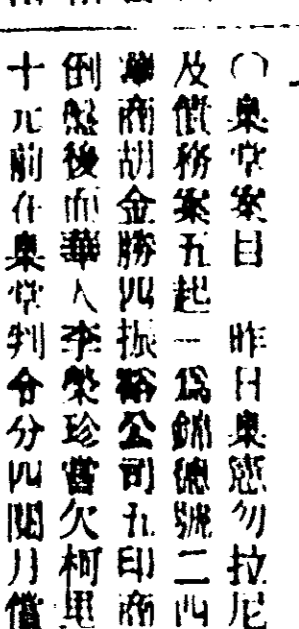 ○臬堂案目　昨日臬憲勿拉尼
及償務案五起一為錦德號二四
華商胡金勝四振裕公司五印商
倒盤後而華人李榮珍嘗欠柯思
十元前在臬堂判令分四關月償